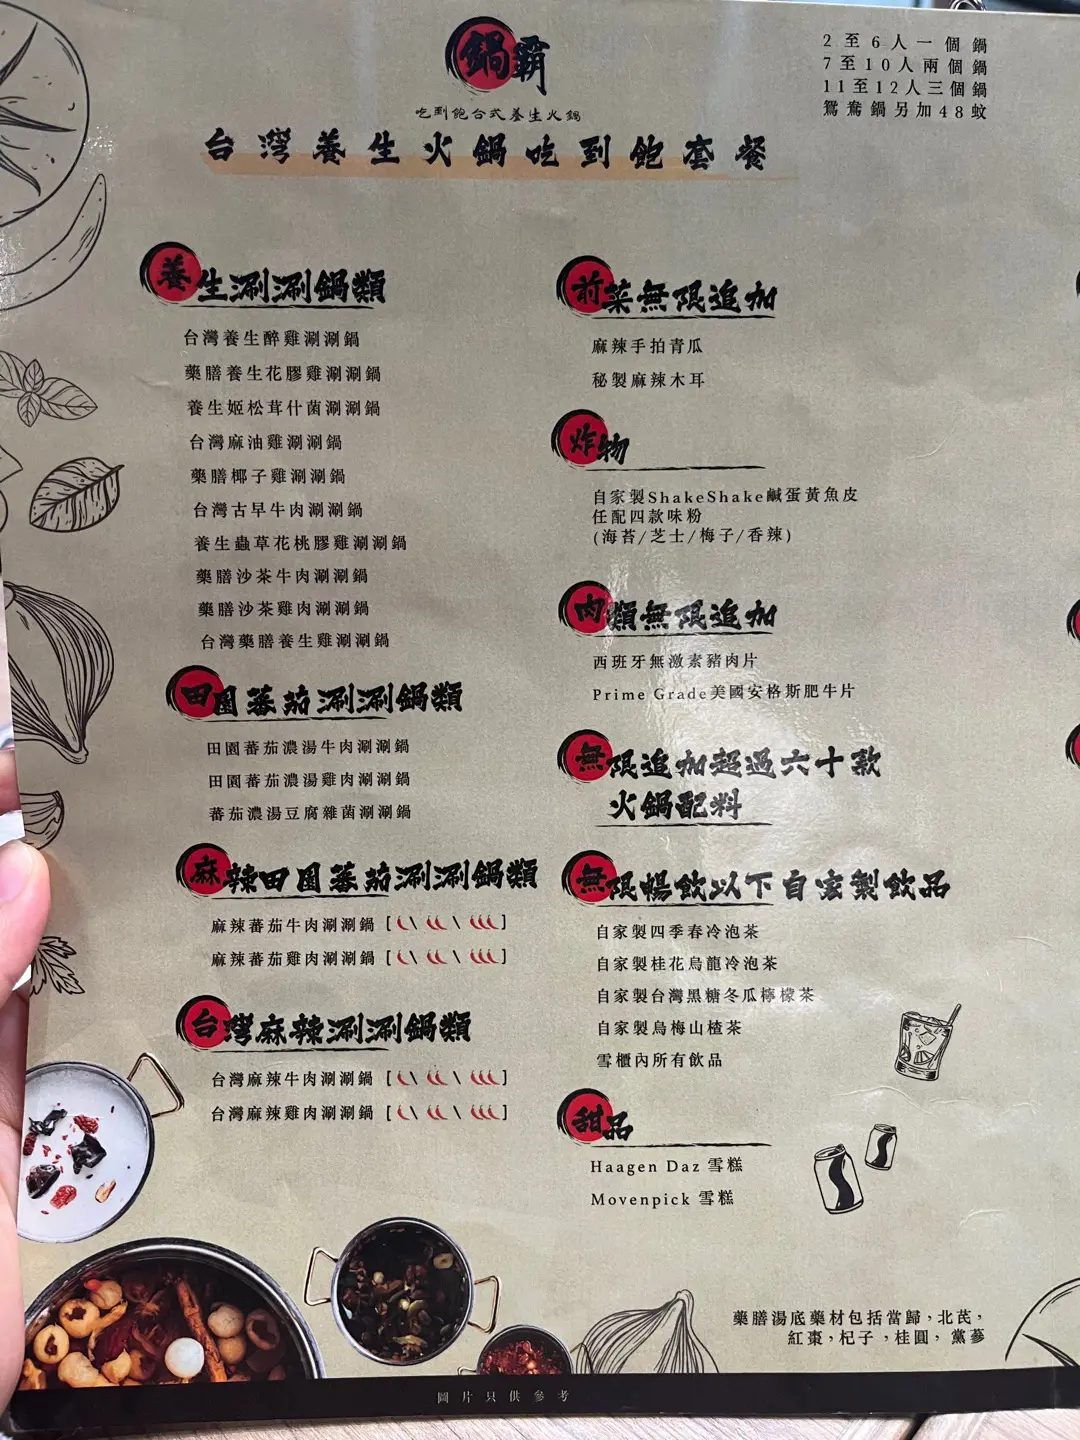 鍋霸
吃到飽台式養生火鍋
台灣養生火鍋吃到飽套餐
2至6人一個鍋
7至10人兩個鍋
11至12人三個鍋
鴛鴦鍋另加48蚊
養生涮涮鍋類
台灣養生醉雞涮涮鍋
藥膳養生花膠雞涮涮鍋
養生姬松茸什菌涮涮鍋
台灣麻油雞涮涮鍋
藥膳椰子雞涮涮鍋
台灣古早牛肉涮涮鍋
養生蟲草花桃膠雞涮涮鍋
藥膳沙茶牛肉涮涮鍋
藥膳沙茶雞肉涮涮鍋
台灣藥膳養生雞涮涮鍋
田園蕃茄涮涮鍋類
田園蕃茄濃湯牛肉涮涮鍋
田園蕃茄濃湯雞肉涮涮鍋
蕃茄濃湯豆腐雜菌涮涮鍋
麻辣田園蕃茄涮涮鍋類
麻辣蕃茄牛肉涮涮鍋 [ \ \ ]
麻辣蕃茄雞肉涮涮鍋 [ \ \ ]
台灣麻辣涮涮鍋類
台灣麻辣牛肉涮涮鍋 [ \ \ ]
台灣麻辣雞肉涮涮鍋 [ \ \ ]
前菜無限追加
麻辣手拍青瓜
秘製麻辣木耳
炸物
自家製ShakeShake鹹蛋黃魚皮
任配四款味粉
(海苔/芝士/梅子/香辣)
肉類無限追加
西班牙無激素豬肉片
Prime Grade美國安格斯肥牛片
無限追加超過六十款
火鍋配料
無限暢飲以下自家製飲品
自家製四季春冷泡茶
自家製桂花烏龍冷泡茶
自家製台灣黑糖冬瓜檸檬茶
自家製烏梅山楂茶
雪櫃內所有飲品
甜品
Haagen Daz 雪糕
Movenpick 雪糕
藥膳湯底藥材包括當歸,北芪,
紅棗,杞子,桂圓,黨蔘
圖片只供參考